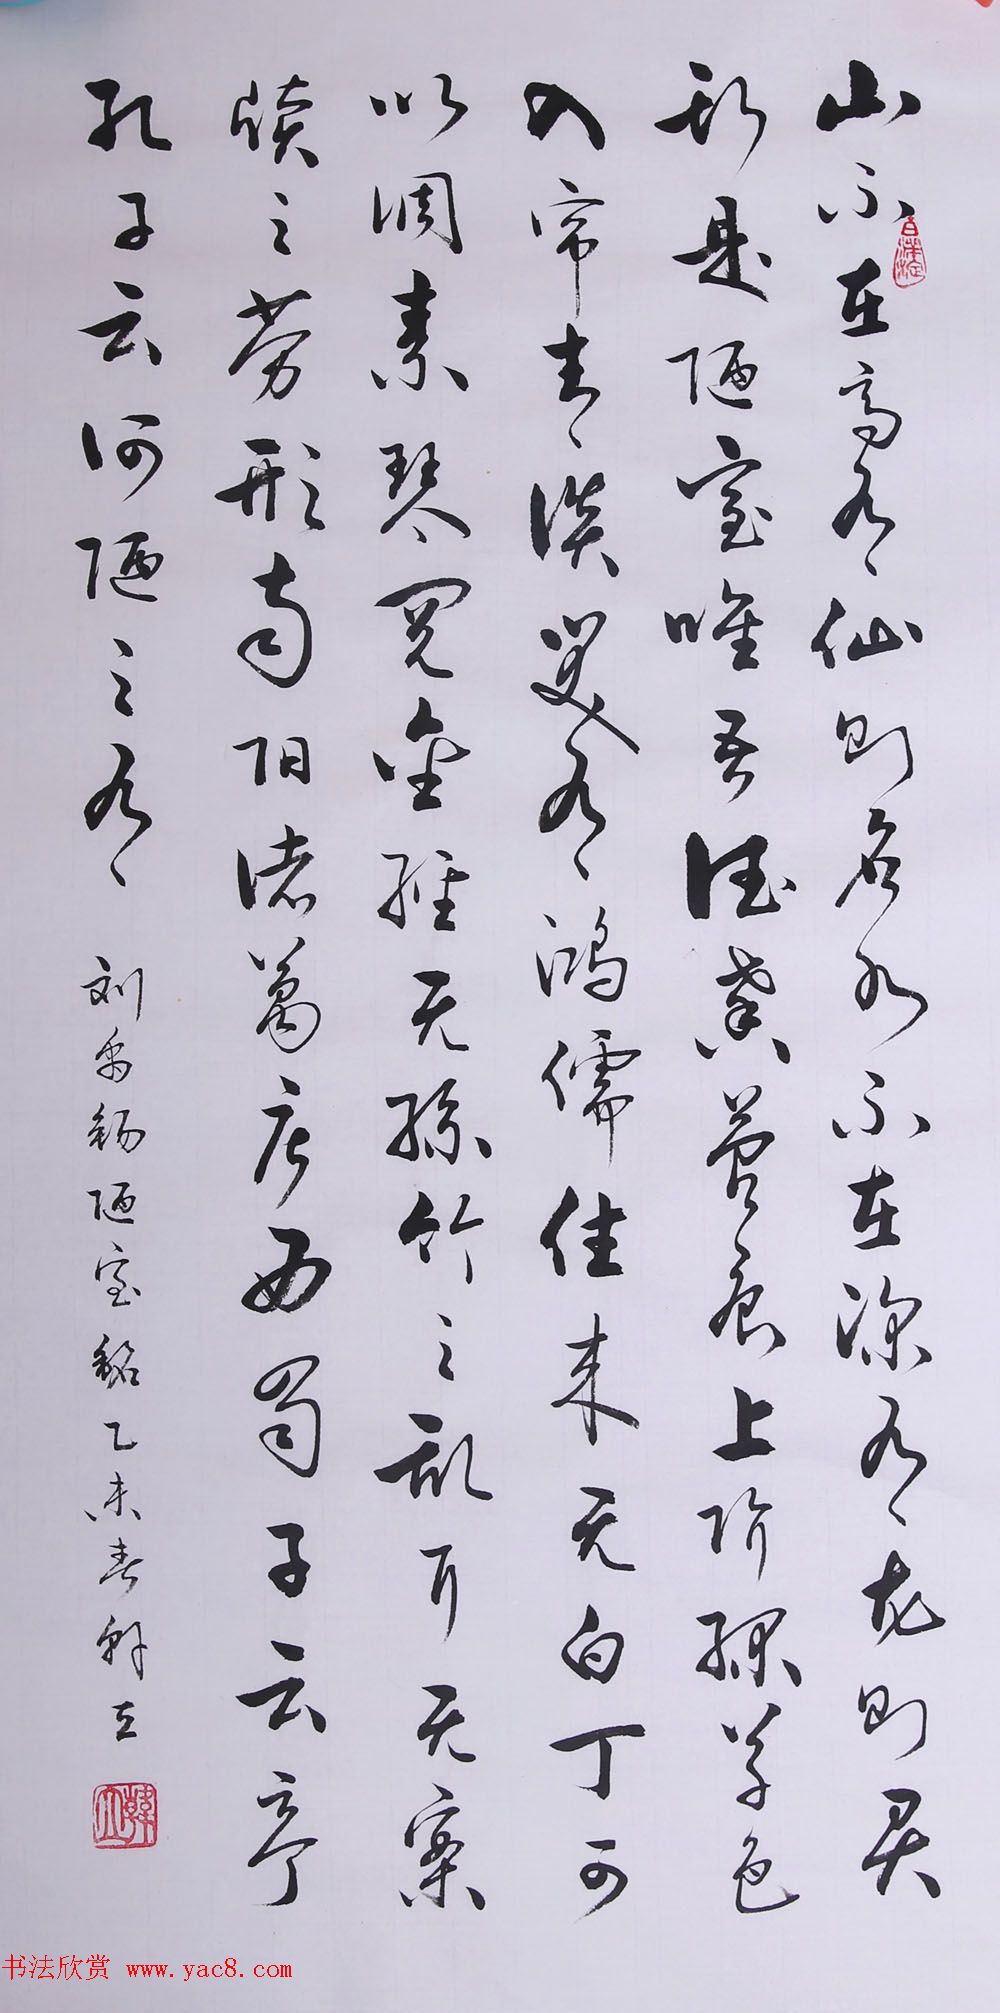 山不在高有仙则名水不在深有龙则灵
斯是陋室唯吾德馨苔痕上阶绿草色
入帘青谈笑有鸿儒往来无白丁可
以调素琴阅金经无丝竹之乱耳无案
牍之劳形南阳诸葛庐西蜀子云亭
孔子云何陋之有
刘禹锡陋室铭乙未春韩立
书法欣赏 www.yac8.com